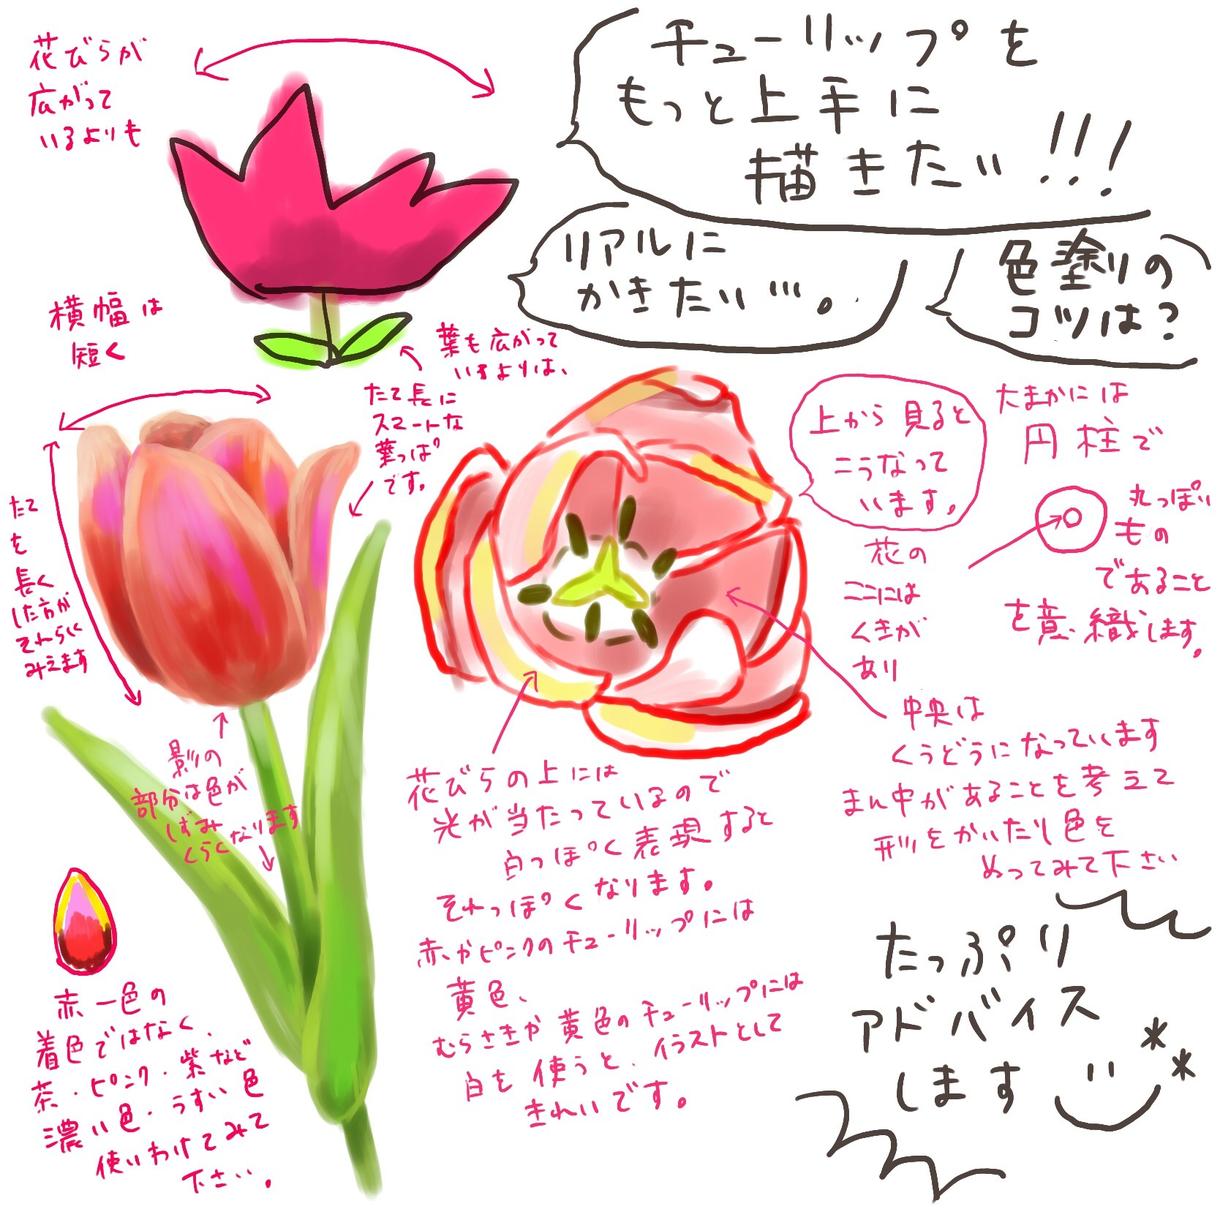 チューリップを
もっと上手に
描きたい!!!
リアルに
かきたい…。
色塗りの
コツは?
花びらが
広がって
いるよりも
横幅は
短く
たてを
長く
した方が
それらしく
みえます
葉も広がって
いるよりは、
たて長に
スマートな
葉っぱ
です。
上から見ると
こうなって
います。
大まかには
円柱で
丸っぽい
もの
であること
を意識します。
花の
ここには
くきが
あり
中央は
くうどうになっています
まん中があることを考えて
形をかいたり色を
ぬってみて下さい
影の
部分は色が
しずみ
くらくなります
花びらの上には
光が当たっているので
白っぽく表現すると
それっぽくなります。
赤やピンクのチューリップには
黄色、
むらさきや黄色のチューリップには
白を使うと、イラストとして
きれいです。
赤一色の
着色ではなく、
茶・ピンク・紫など
濃い色・うすい色
使いわけてみて
下さい。
たっぷり
アドバイス
します